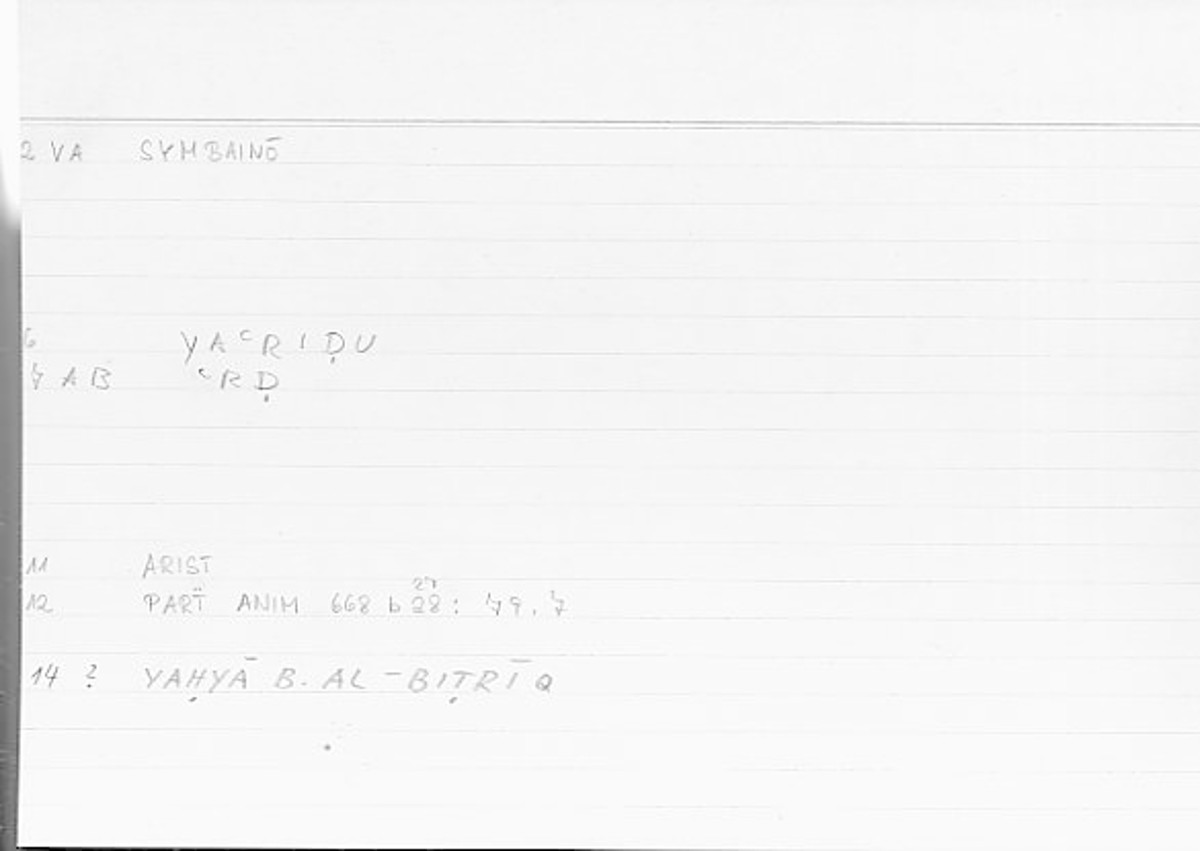 2 VA SYMBAINŌ
6 YAʿRIḌU
7 AB ʿRḌ
11 ARIST
27
12 PART ANIM 668 b 28: 79.7
14 ? YAḤYĀ B. AL-BIṬRĪQ